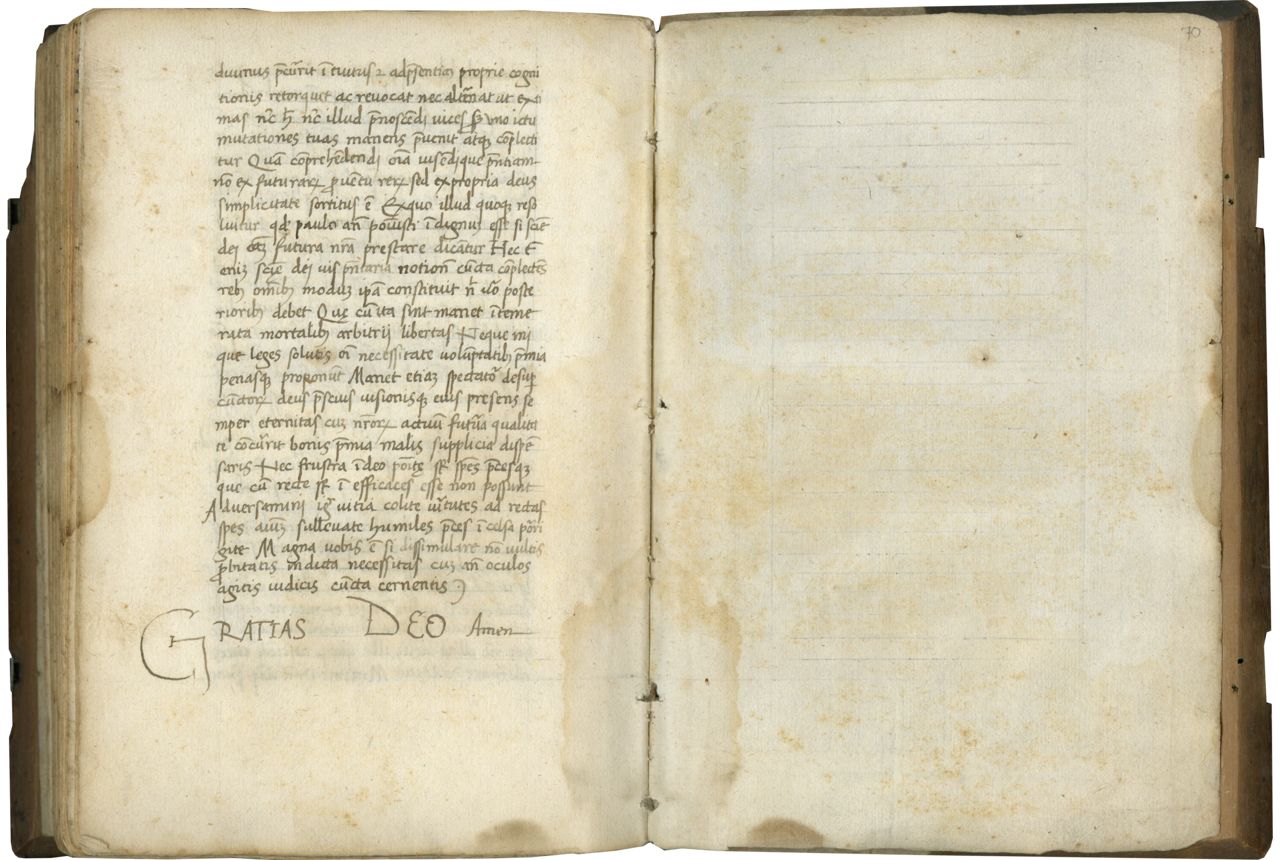 70
diuinus p̄currit ī tuitus ⁊ ad p̄sentiaꝫ proprie cogni
tionis retorquet ac revocat nec alt̄nat ut exi
mas nc̄ h̄ nc̄ illud p̄noscēdi uices sꝫ vno ictu
mutationes tuas manens p̄uenit atqꝫ cōplecti
tur Quā cōprehēdendi oīa uisēdique p̄ntiam
nō ex futuraꝝ ꝓuentu reꝝ sed ex propria deus
simplicitate sortitus ē Ex quo illud quoqꝫ reso
luitur qd̄ paulo añ posuisti īdignuꝫ esse si sciē
dei cāꝫ futura nr̄a prestare dicantur Hec ē
eniꝫ scīe dei uis p̄ntaria notionē cūcta cōplectēs
rebꝫ omībꝫ moduꝫ ip̄a constituit nl̄ uō poste
rioribꝫ debet Quę cū ita sint manet ī teme
rata mortalibꝫ arbitrii libertas Neque ini
que leges solutis oī necessitate voluptatibꝫ p̄mia
penasqꝫ proponūt Manet etiaꝫ spectatoꝛ desup̄
cūctoꝝ deus p̄scius uisionisqꝫ eius presens se
mper eternitas cuꝫ nr̄oꝝ actuū futūa qualita
te cōcūrit bonis p̄mia malis supplicia dispē
sans Nec frustra ī deo poītę st̄ spes p̄cesqꝫ
que cū recte st̄ ī efficaces esse non possunt
Aduersamini igr̄ uitia colite ūtutes ad rectas
spes aīuꝫ subleuate humiles p̄ces ī celsa poꝛri
gite Magna vobis ē si dissimulare nō uultis
ꝓbitatis indicta necessitas cuꝫ añ oculos
agitis iudicis cūcta cernentis :)
GRATIAS DEO Amen